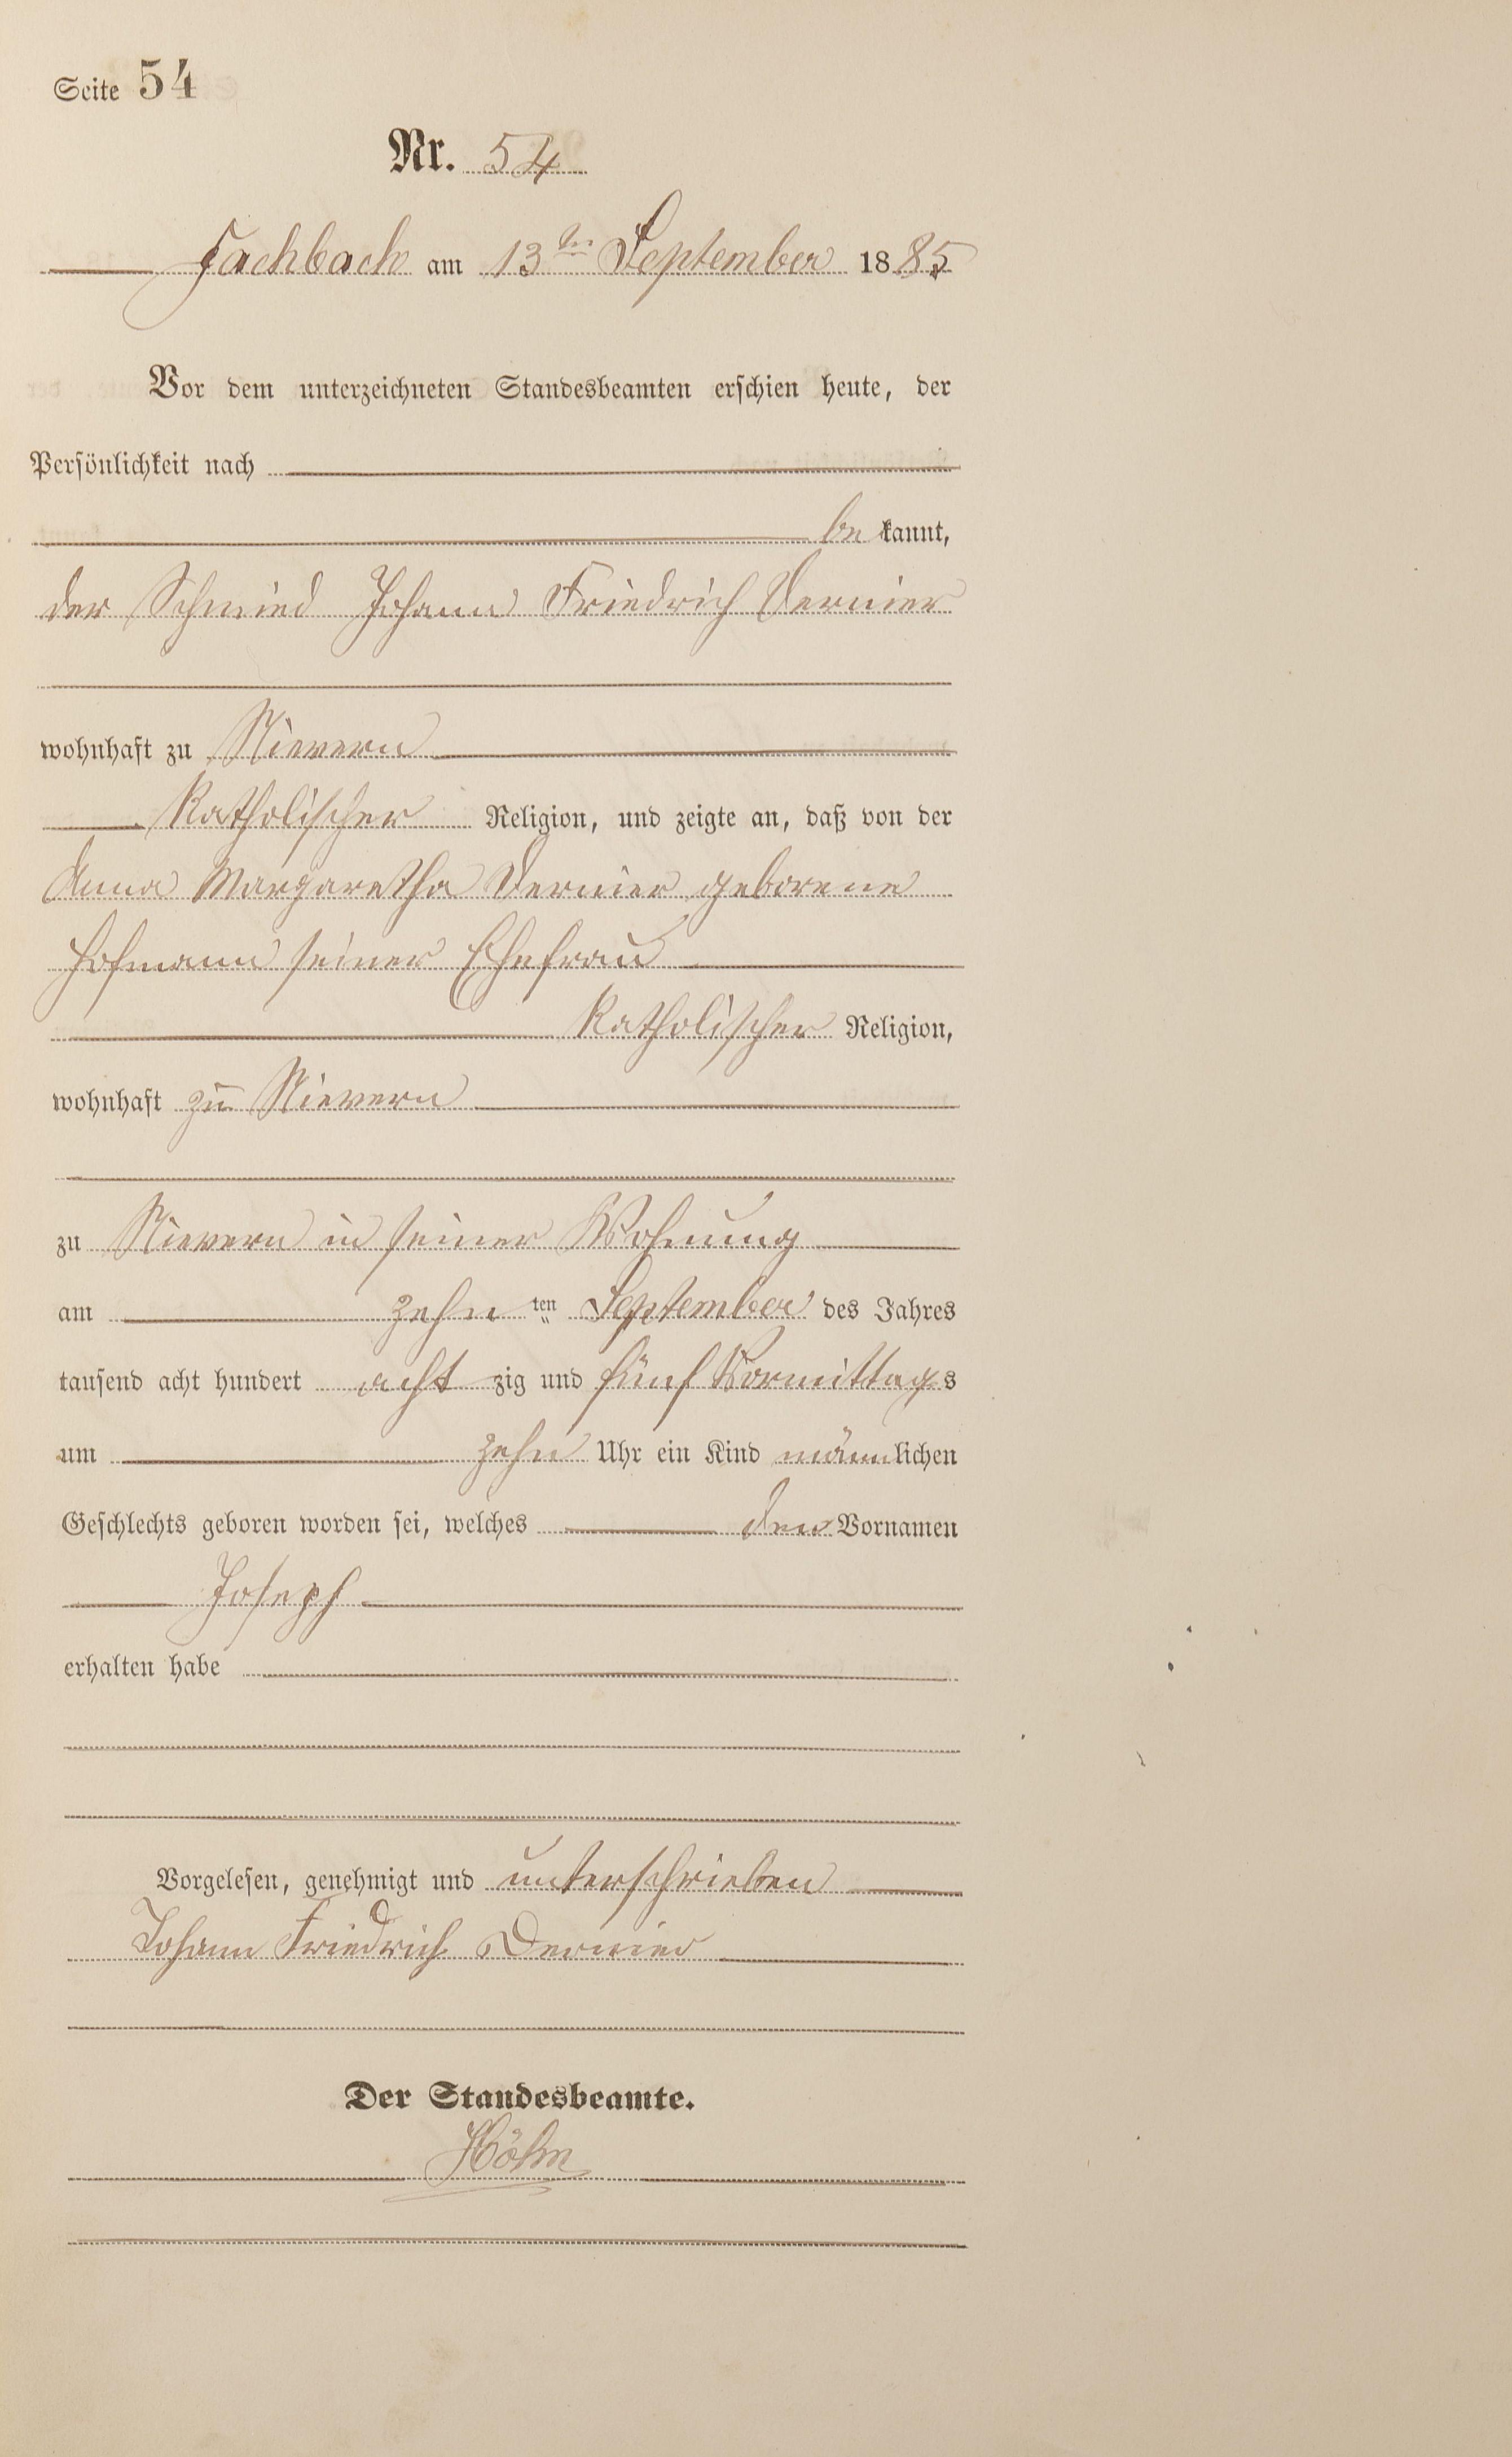 Seite 54
Nr. 54
Fachbach am 13ten September 1885
Vor dem unterzeichneten Standesbeamten erschien heute, der
Persönlichkeit nach
bekannt,
der Schmied Johann Friedrich Dernier
wohnhaft zu Nievern
Katholischer Religion, und zeigte an, daß von der
Anna Margaretha Dernier geborene
Hofmann seiner Ehefrau
Katholischer Religion,
wohnhaft zu Nievern
zu Nievern in seiner Wohnung
am zehnten September des Jahres
tausend acht hundert achtzig und fünf Vormittags
um zehn Uhr ein Kind männlichen
Geschlechts geboren worden sei, welches den Vornamen
Joseph
erhalten habe
Vorgelesen, genehmigt und unterschrieben
Johann Friedrich Dernier
Der Standesbeamte.